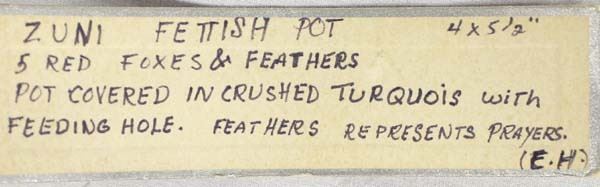 ZUNI FETTISH POT 4 x 5 1/2"
5 RED FOXES & FEATHERS
POT COVERED IN CRUSHED TURQUOIS with
FEEDING HOLE. FEATHERS REPRESENTS PRAYERS.
(E.H.)